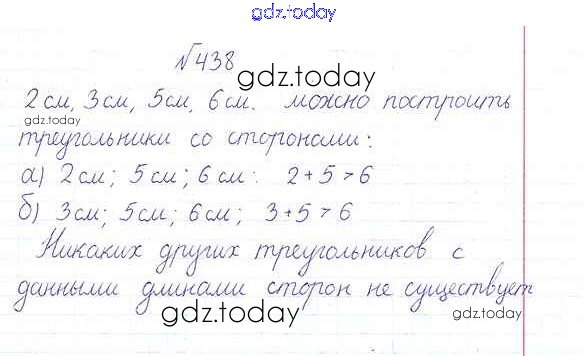 gdz.today
№438
gdz.today
2см, 3см, 5см, 6см. можно построить
gdz.today
треугольники со сторонами:
а) 2см; 5см; 6см: 2+5>6
б) 3см; 5см; 6см; 3+5>6
Никаких других треугольников с
данными длинами сторон не существует
gdz.today
gdz.today